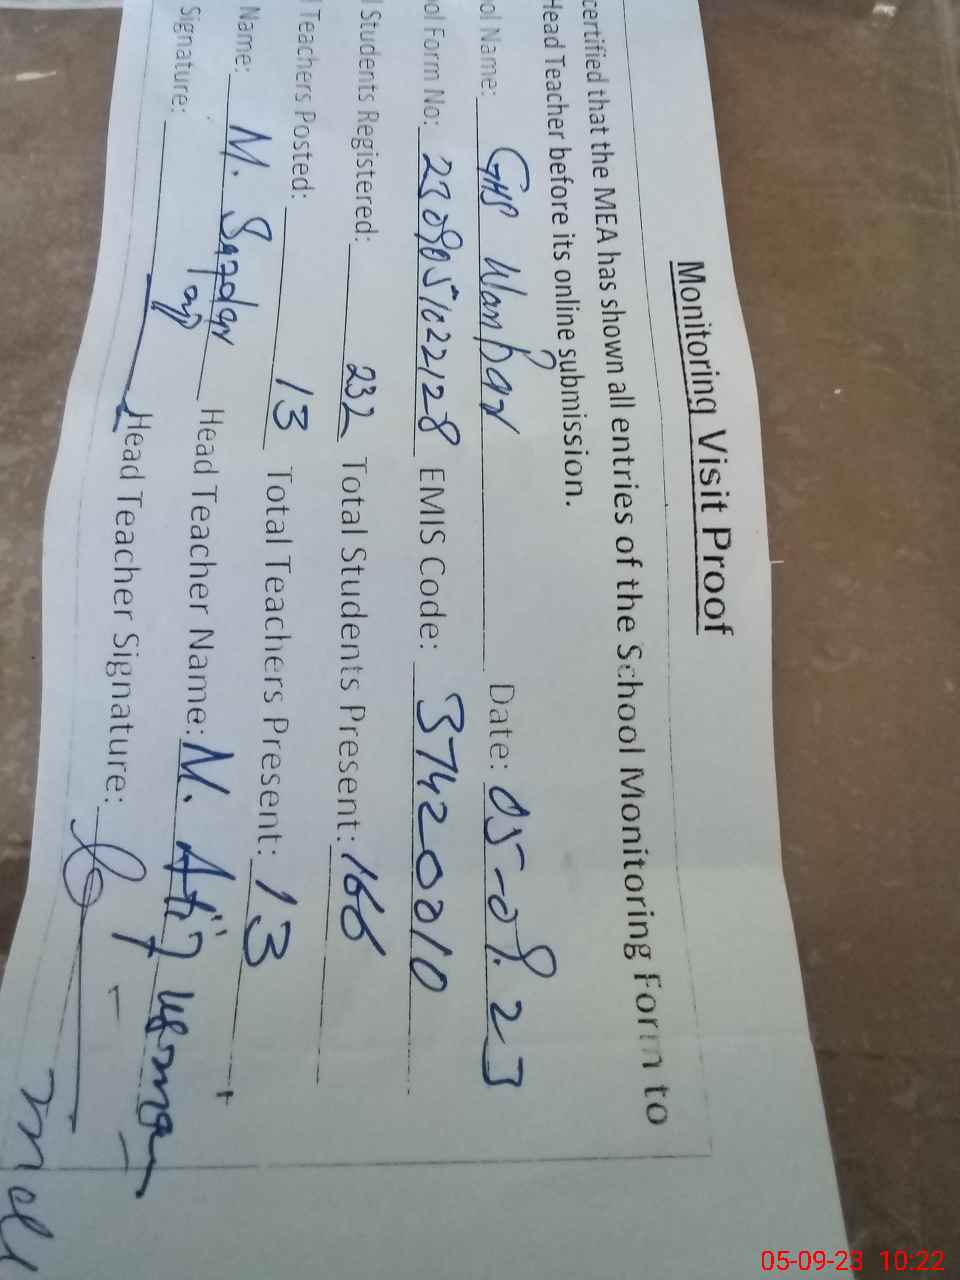 Monitoring Visit Proof
certified that the MEA has shown all entries of the School Monitoring Form to
Head Teacher before its online submission.
ol Name: GHS Wanhar Date: 05-09.23
ol Form No: 2309051022128 EMIS Code: 37420010
l Students Registered: 232 Total Students Present: 166
l Teachers Posted: 13 Total Teachers Present: 13
Name: M. Safdar Head Teacher Name: M. Atiq usman
Signature: Head Teacher Signature:
05-09-23 10:22